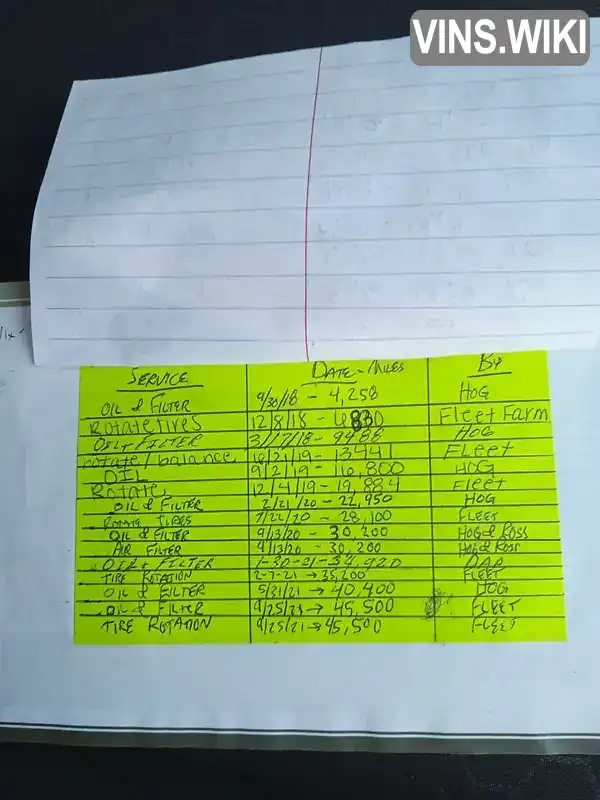 VINS.WIKI
SERVICE DATE - MILES BY
OIL & FILTER 9/30/18 - 4,258 HOG
Rotate tires 12/8/18 - 6830 Fleet Farm
OIL + FILTER 3/17/18 - 9488 HOG
rotate/balance 6/21/19 - 13441 Fleet
OIL 9/2/19 - 16,800 HOG
Rotate 12/4/19 - 19,884 Fleet
OIL & FILTER 2/21/20 - 22,950 HOG
ROTATE TIRES 7/22/20 - 28,100 FLEET
OIL & FILTER 9/13/20 - 30,200 HOG & ROSS
AIR FILTER 9/13/20 - 30,200 HOG & ROSS
OIL + FILTER 1-30-21 - 34,920 DAD
TIRE ROTATION 2-7-21 → 35,200 FLEET
OIL & FILTER 5/31/21 → 40,400 HOG
OIL & FILTER 9/25/21 → 45,500 FLEET
TIRE ROTATION 9/25/21 → 45,500 FLEET